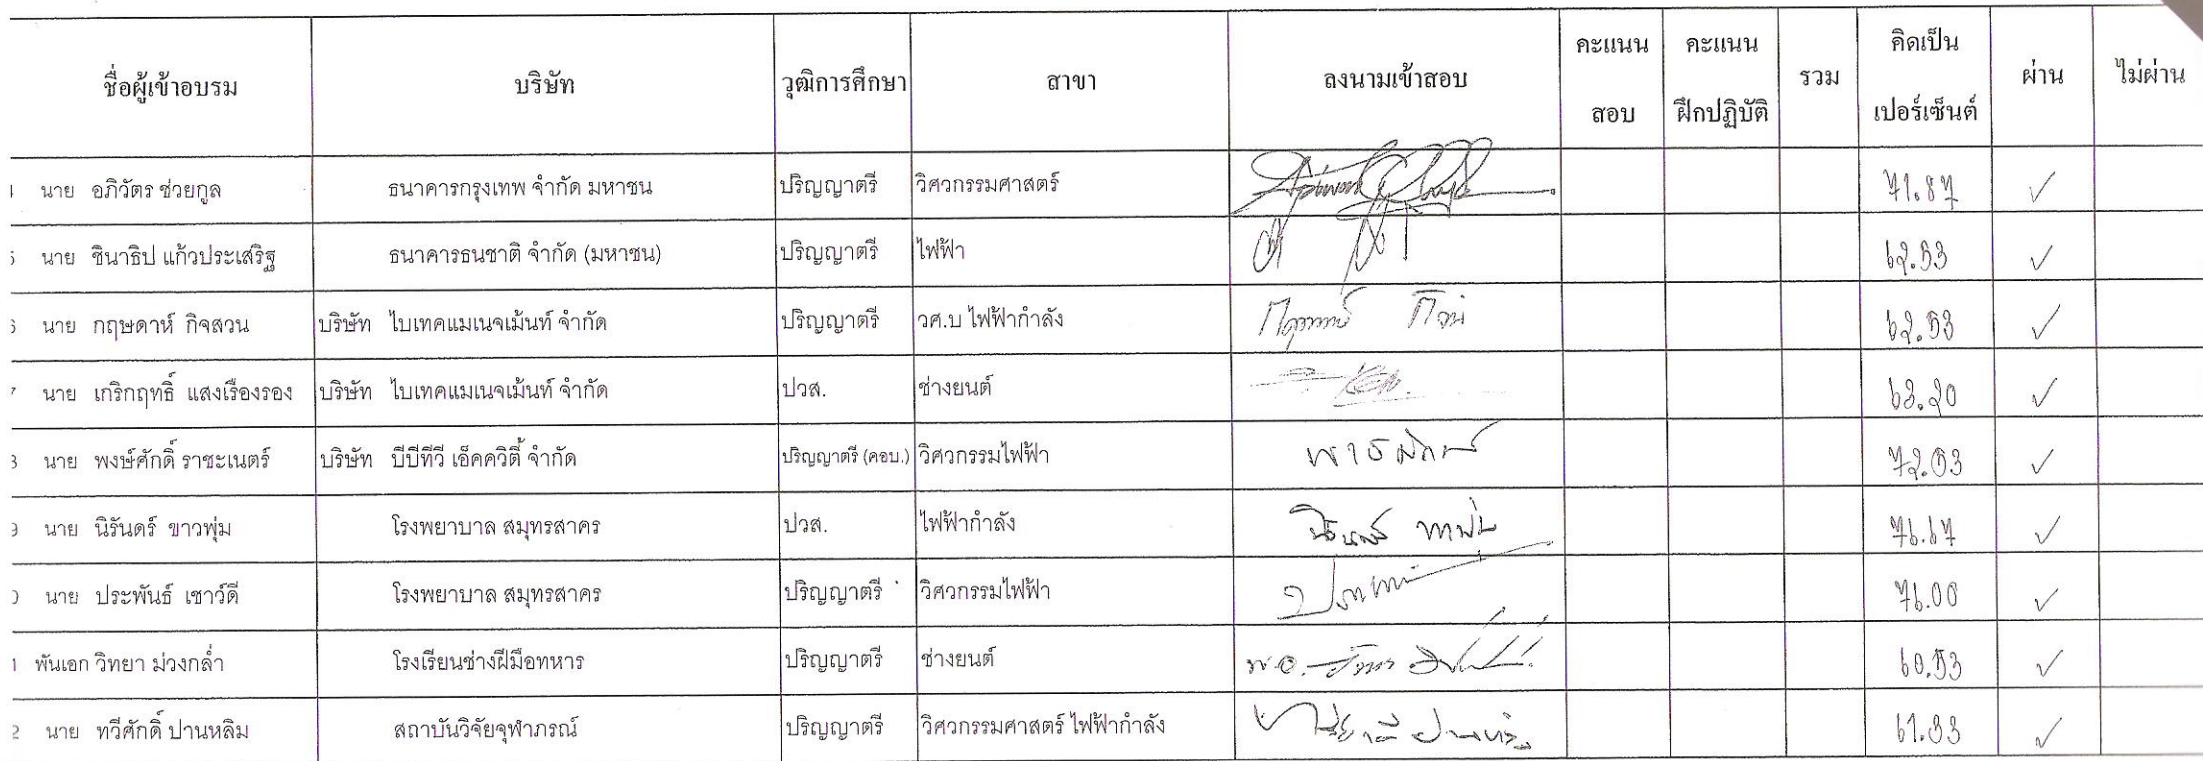 ชื่อผู้เข้าอบรม บริษัท วุฒิการศึกษา สาขา ลงนามเข้าสอบ คะแนนสอบ คะแนนฝึกปฏิบัติ รวม คิดเป็นเปอร์เซ็นต์ ผ่าน ไม่ผ่าน
4 นาย อภิวัตร ช่วยกูล ธนาคารกรุงเทพ จำกัด มหาชน ปริญญาตรี วิศวกรรมศาสตร์ 71.87 ✓
5 นาย ชินาธิป แก้วประเสริฐ ธนาคารธนชาติ จำกัด (มหาชน) ปริญญาตรี ไฟฟ้า 62.53 ✓
6 นาย กฤษดาห์ กิจสวน บริษัท ไบเทคแมเนจเม้นท์ จำกัด ปริญญาตรี วศ.บ ไฟฟ้ากำลัง 62.53 ✓
7 นาย เกริกฤทธิ์ แสงเรืองรอง บริษัท ไบเทคแมเนจเม้นท์ จำกัด ปวส. ช่างยนต์ 63.20 ✓
8 นาย พงษ์ศักดิ์ ราชะเนตร์ บริษัท บีบีทีวี เอ็คควิตี้ จำกัด ปริญญาตรี (คอบ.) วิศวกรรมไฟฟ้า 72.03 ✓
9 นาย นิรันดร์ ขาวพุ่ม โรงพยาบาล สมุทรสาคร ปวส. ไฟฟ้ากำลัง 76.67 ✓
0 นาย ประพันธ์ เชาว์ดี โรงพยาบาล สมุทรสาคร ปริญญาตรี วิศวกรรมไฟฟ้า 76.00 ✓
1 พันเอก วิทยา ม่วงกล่ำ โรงเรียนช่างฝีมือทหาร ปริญญาตรี ช่างยนต์ พ.อ. 60.53 ✓
2 นาย ทวีศักดิ์ ปานหลิม สถาบันวิจัยจุฬาภรณ์ ปริญญาตรี วิศวกรรมศาสตร์ ไฟฟ้ากำลัง 61.33 ✓